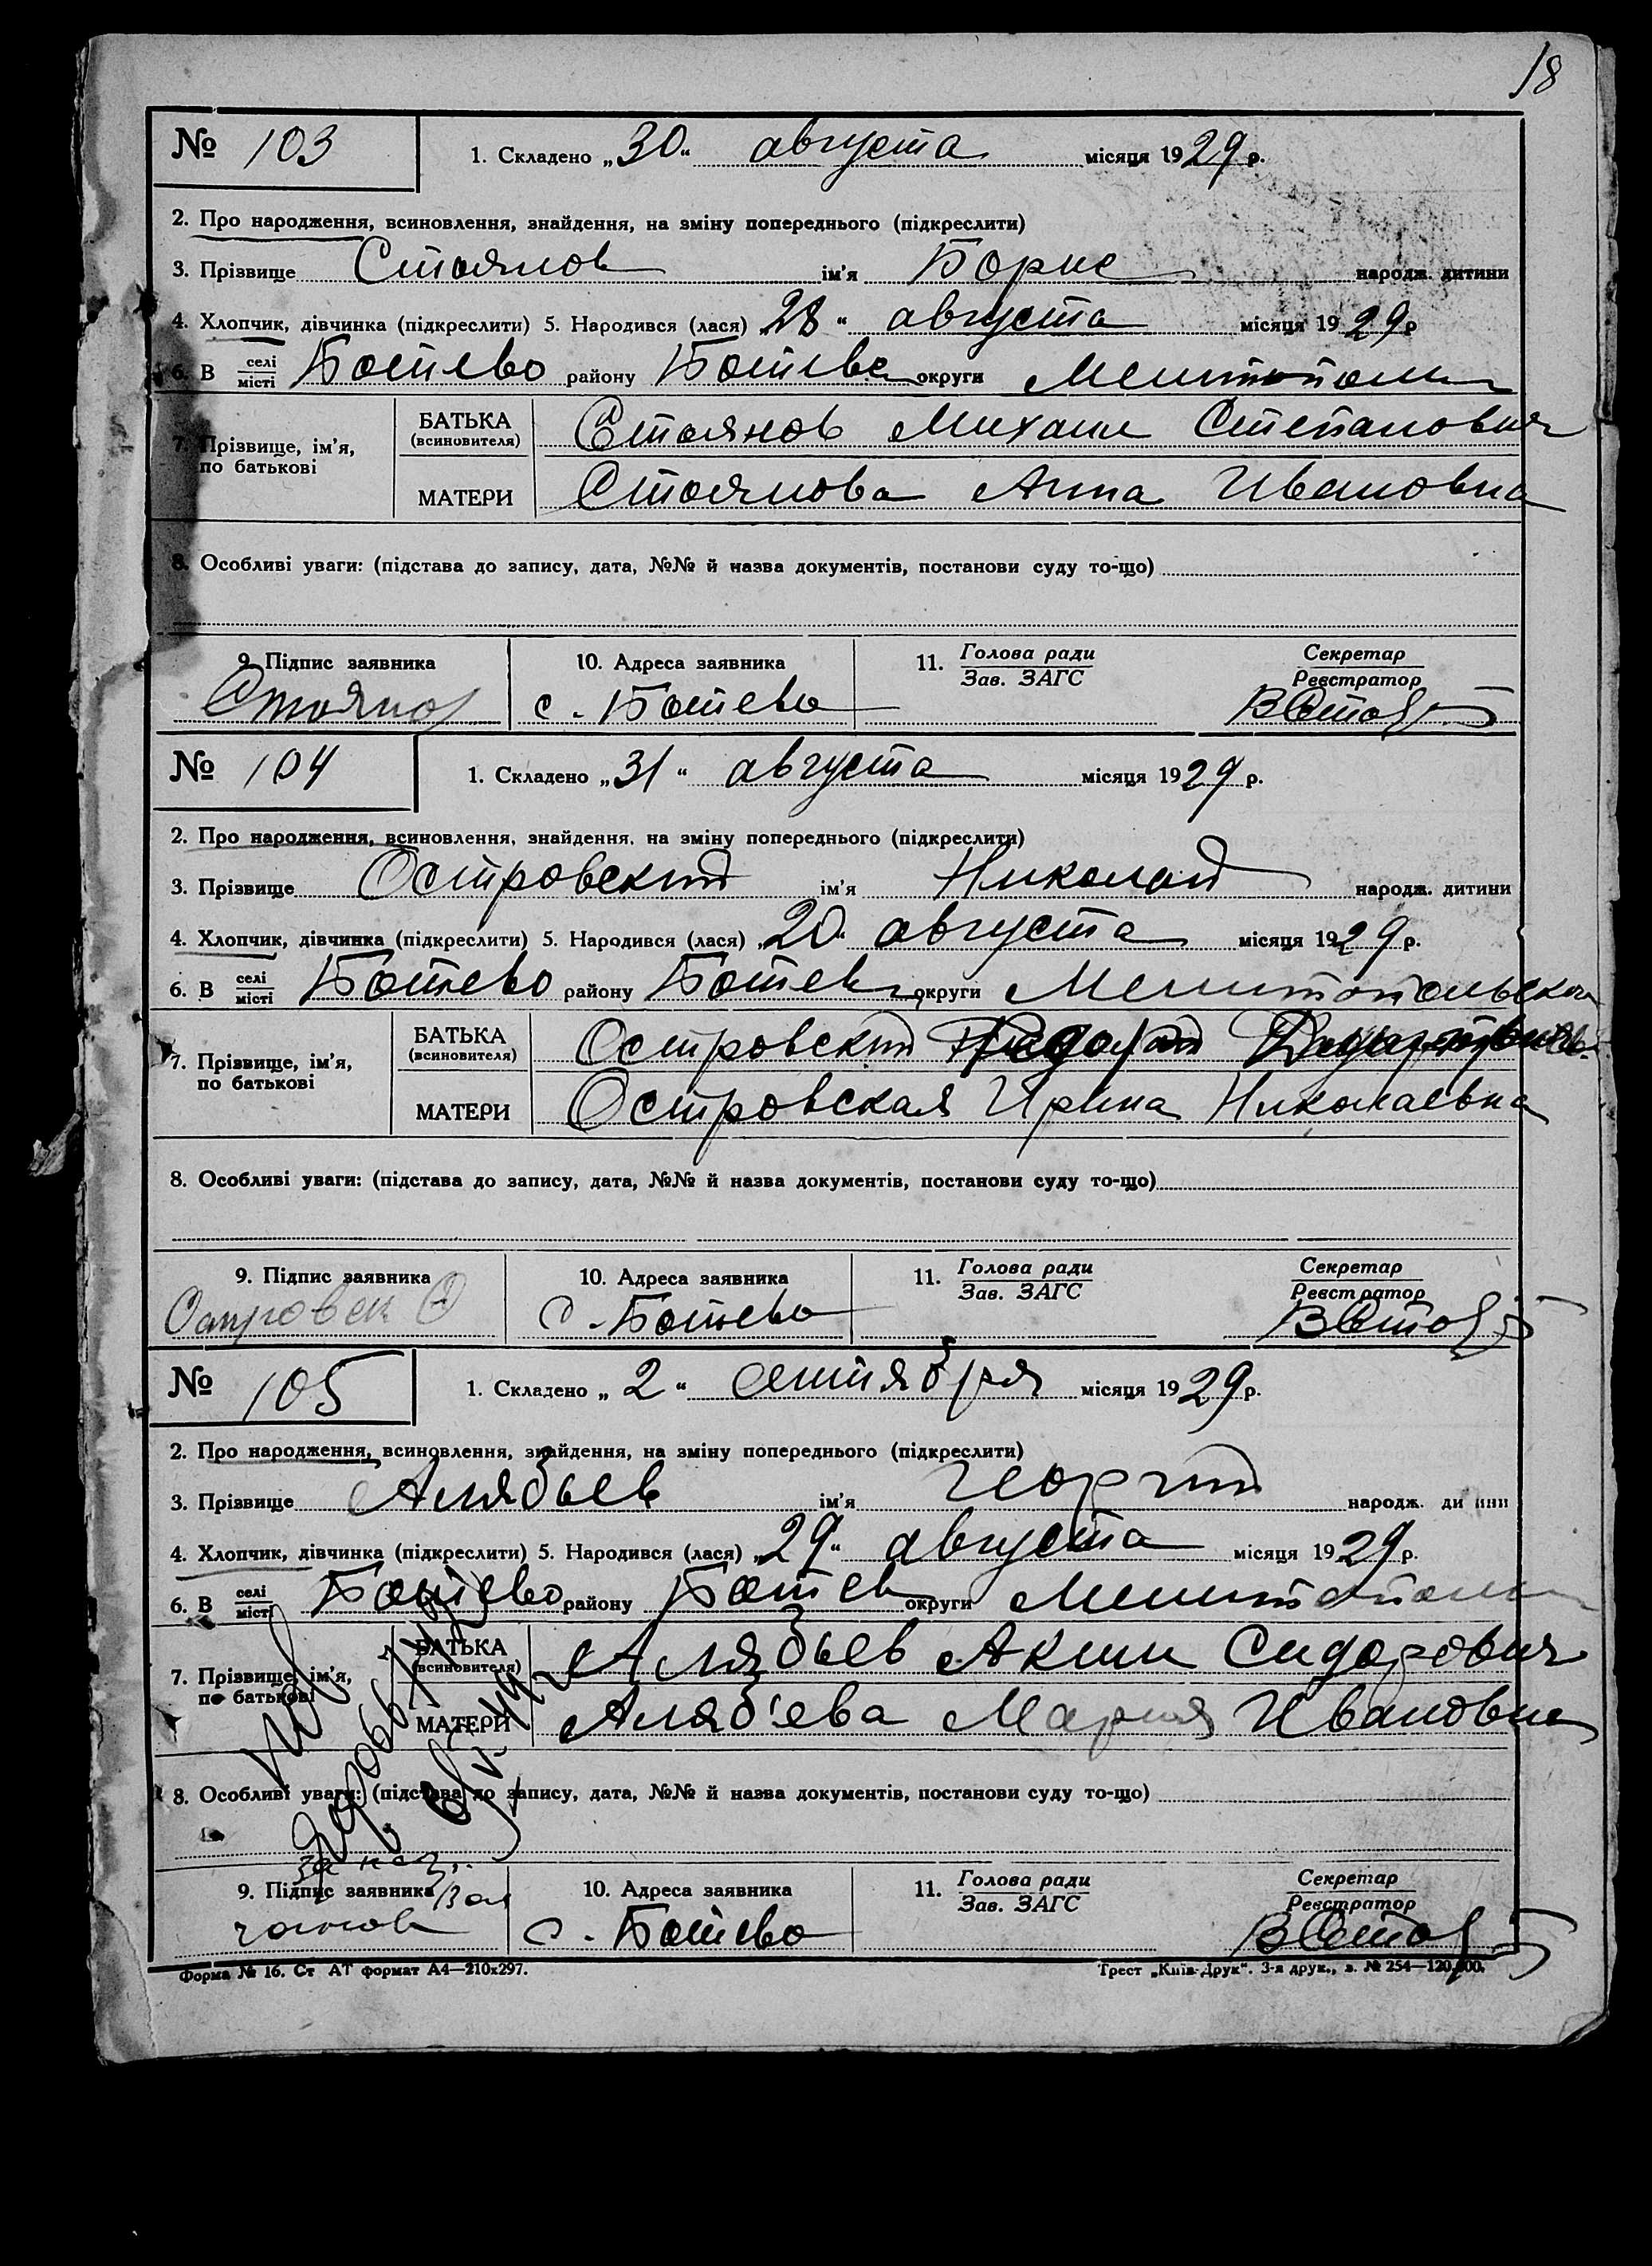 18
№ 103 1. Складено „30“ августа місяця 1929 р.
2. Про народження, всиновлення, знайдення, на зміну попереднього (підкреслити)
3. Прізвище Стоянов ім'я Борис народж. дитини
4. Хлопчик, дівчинка (підкреслити) 5. Народився (лася) „28“ августа місяця 1929 р
6. В селі/місті Ботево району Ботево округи Мелитополь
7. Прізвище, ім'я, по батькові БАТЬКА (всиновителя) Стоянов Михаил Степанович
МАТЕРИ Стоянова Анна Ивановна
8. Особливі уваги: (підстава до запису, дата, №№ й назва документів, постанови суду то-що)
9. Підпис заявника 10. Адреса заявника 11. Голова ради/Зав. ЗАГС Секретар/Реєстратор
Стоянов с. Ботево
№ 104 1. Складено „31“ августа місяця 1929 р.
2. Про народження, всиновлення, знайдення, на зміну попереднього (підкреслити)
3. Прізвище Островский ім'я Николай народж. дитини
4. Хлопчик, дівчинка (підкреслити) 5. Народився (лася) „20“ августа місяця 1929 р.
6. В селі/місті Ботево району Ботев округи Мелитопольской
7. Прізвище, ім'я, по батькові БАТЬКА (всиновителя) Островский
МАТЕРИ Островская Ирина Николаевна
8. Особливі уваги: (підстава до запису, дата, №№ й назва документів, постанови суду то-що)
9. Підпис заявника 10. Адреса заявника 11. Голова ради/Зав. ЗАГС Секретар/Реєстратор
Островск с. Ботево
№ 105 1. Складено „2“ сентября місяця 1929 р.
2. Про народження, всиновлення, знайдення, на зміну попереднього (підкреслити)
3. Прізвище Алябьев ім'я Георгий народж. дитини
4. Хлопчик, дівчинка (підкреслити) 5. Народився (лася) „29“ августа місяця 1929 р.
6. В селі/місті Ботево району Ботев округи Мелитополь
7. Прізвище, ім'я, по батькові БАТЬКА (всиновителя) Алябьев Аким Сидорович
МАТЕРИ Аляб'ева Мария Ивановна
8. Особливі уваги: (підстава до запису, дата, №№ й назва документів, постанови суду то-що)
9. Підпис заявника 10. Адреса заявника 11. Голова ради/Зав. ЗАГС Секретар/Реєстратор
с. Ботево
Форма № 16. Ст АТ формат А4—210х297. Трест „Київ-Друк“. 3-я друк., з. № 254—120.000.